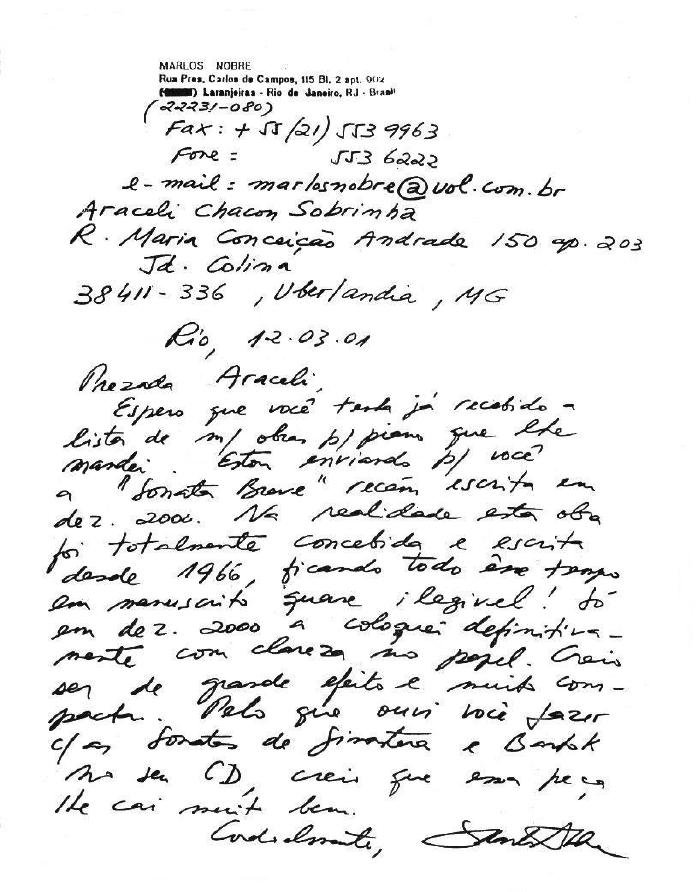 MARLOS NOBRE
Rua Pres. Carlos de Campos, 115 Bl. 2 apt. 902
Laranjeiras - Rio de Janeiro, RJ - Brasil
(22231-080)
Fax: + 55 (21) 553 9963
Fone = 553 6222
e-mail: marlosnobre@uol.com.br
Araceli Chacon Sobrinha
R. Maria Conceição Andrade 150 ap. 203
Jd. Colina
38411-336, Uberlandia, MG
Rio, 12.03.01
Prezada Araceli,
Espero que você tenha já recebido a
lista de m/ obras p/ piano que lhe
mandei. Estou enviando p/ você
a "Sonata Breve" recém escrita em
dez. 2000. Na realidade esta obra
foi totalmente concebida e escrita
desde 1966, ficando todo êsse tempo
em manuscrito quase ilegivel! Só
em dez. 2000 a coloquei definitiva-
mente com clareza no papel. Creio
ser de grande efeito e muito com-
pacta. Pelo que ouvi você fazer
c/ as Sonatas de Ginastera e Bartok
no seu CD, creio que essa peça
lhe cai muito bem.
Cordialmente,